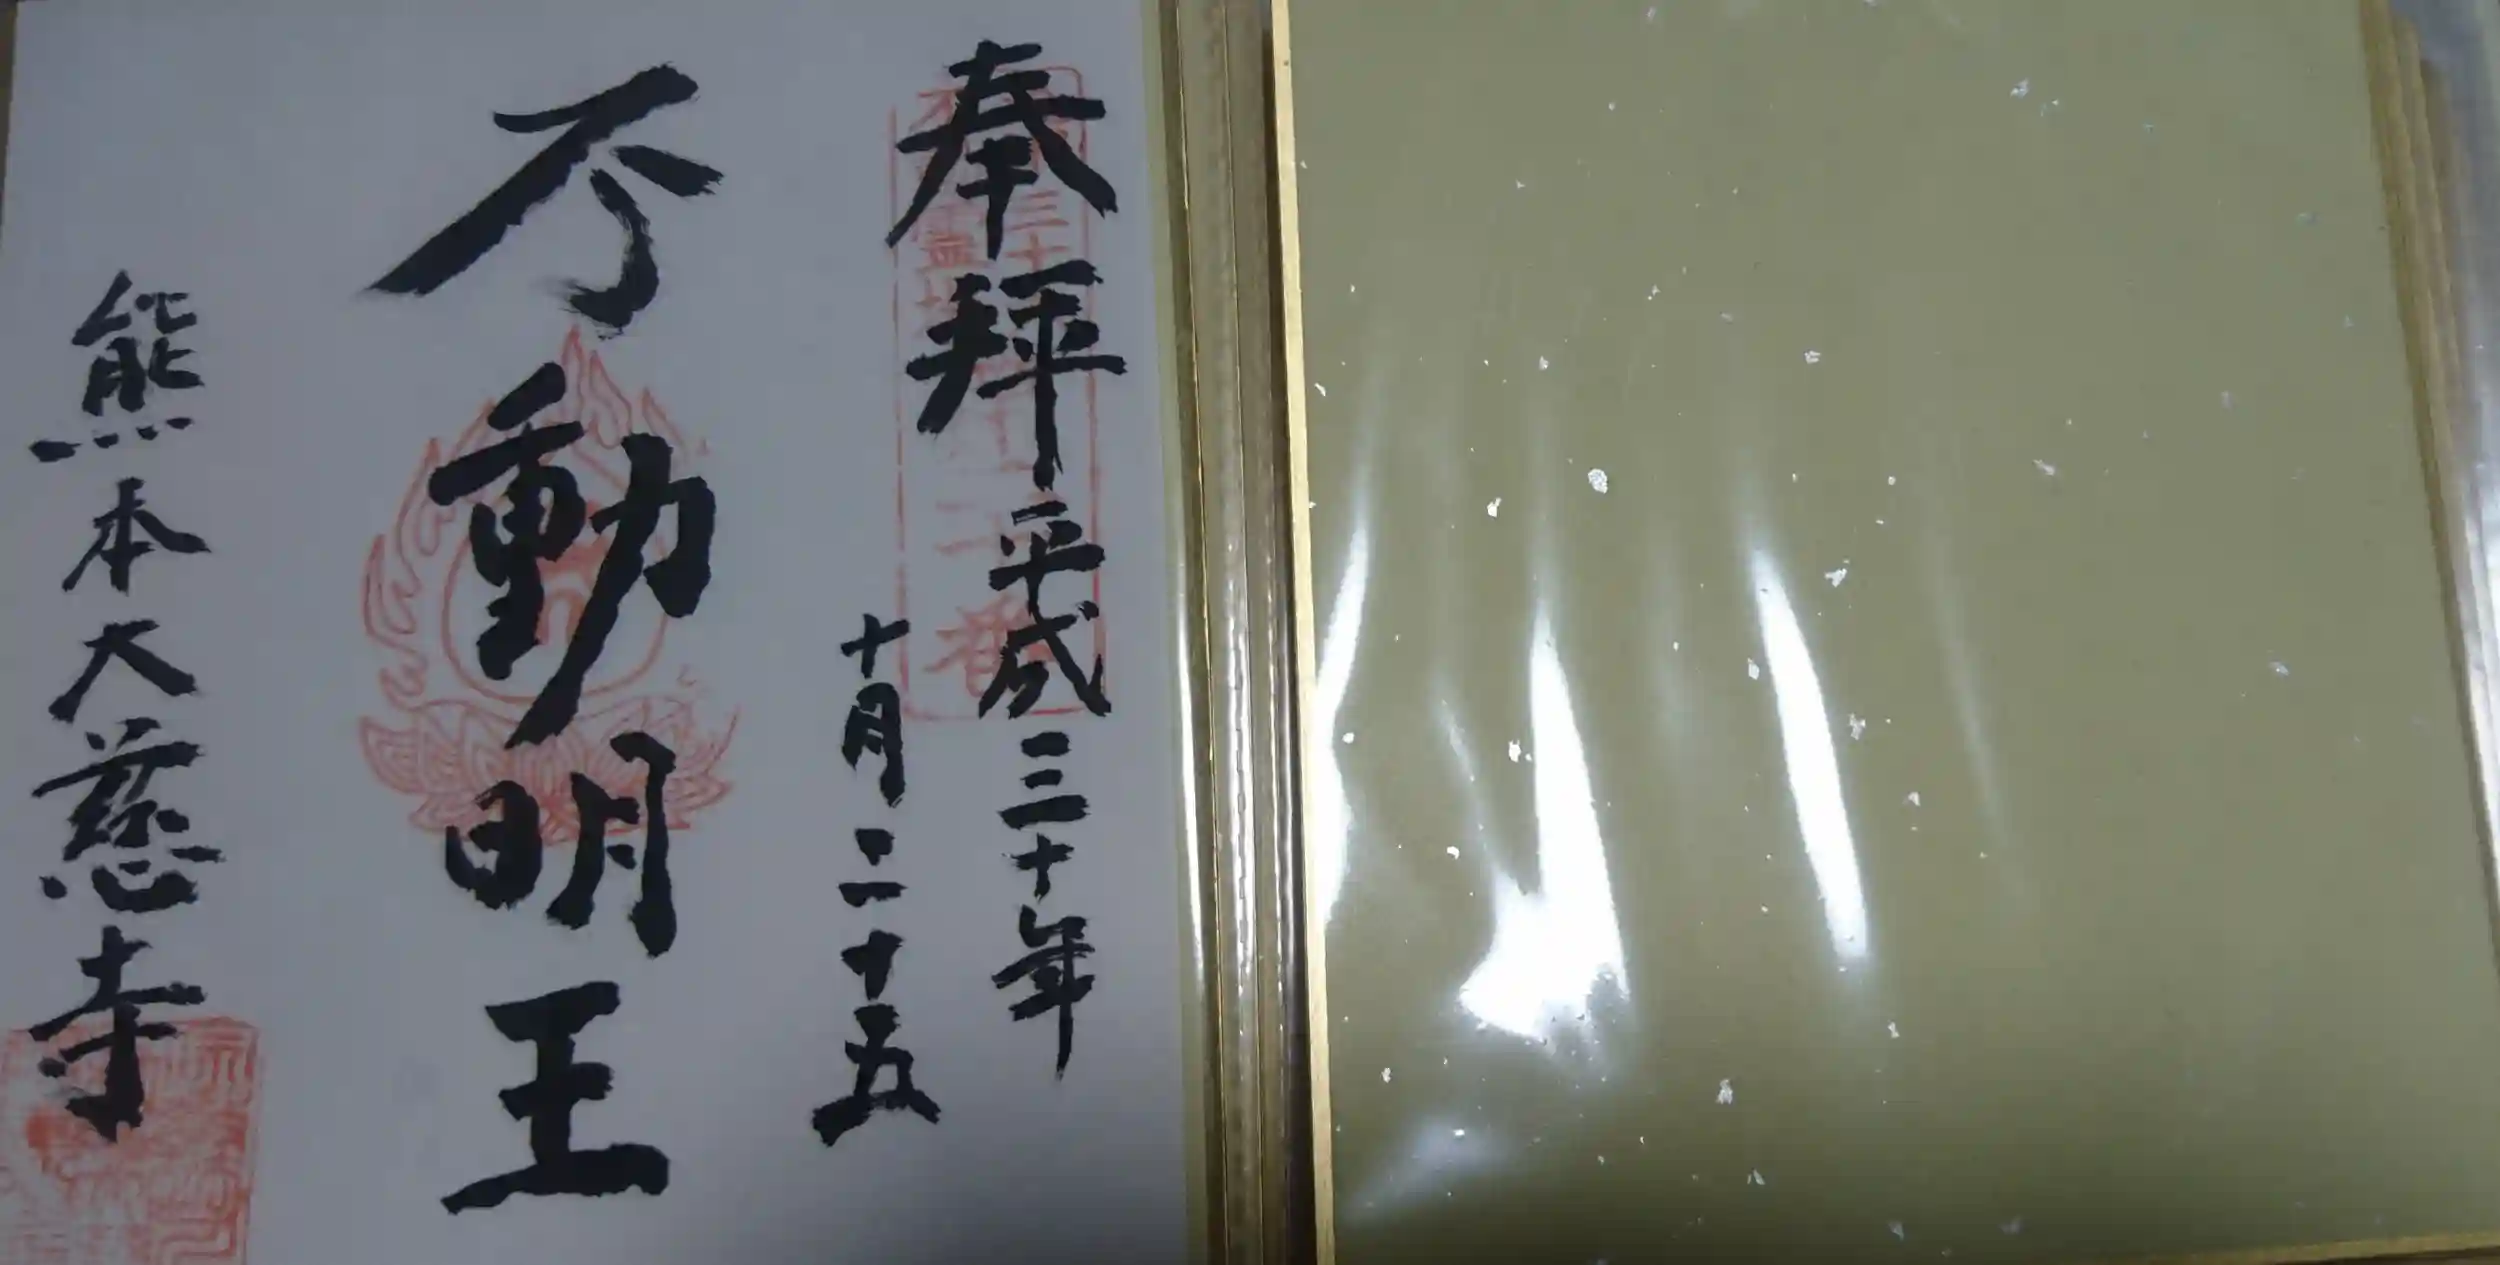 奉拝
平成三十年
十月二十五
不動明王
熊本大慈寺